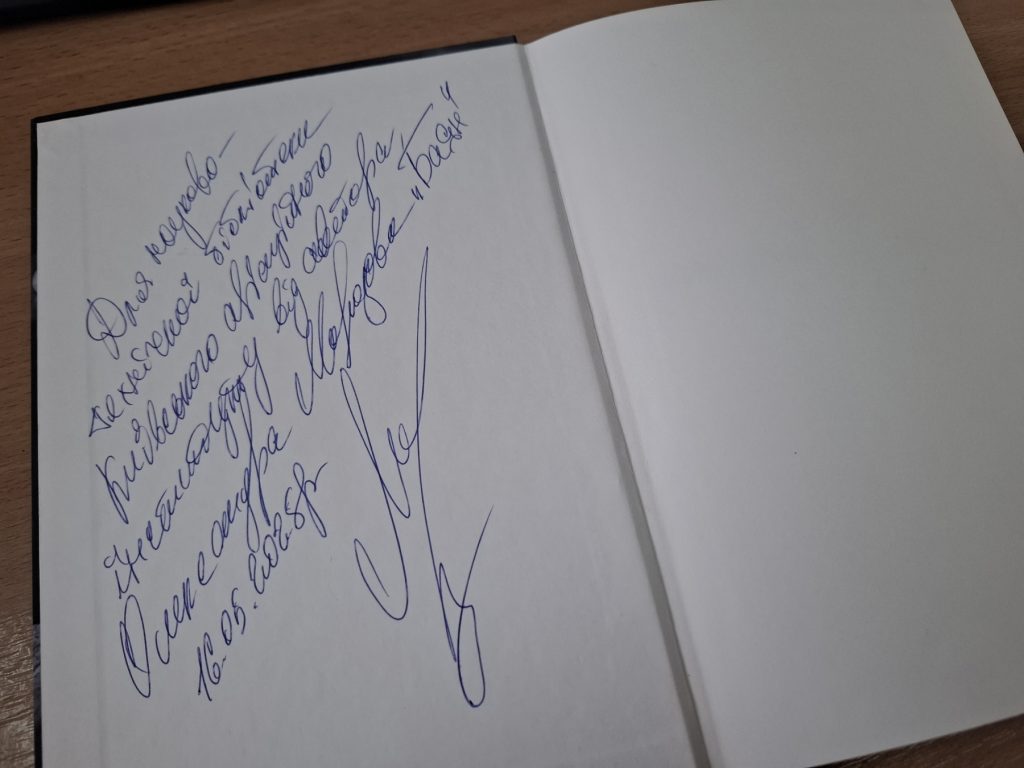 Для науково-
технічної бібліотеки
Київського авіаційного
інституту від автора
Олександра Морозова „Баса"
16.05.2025р